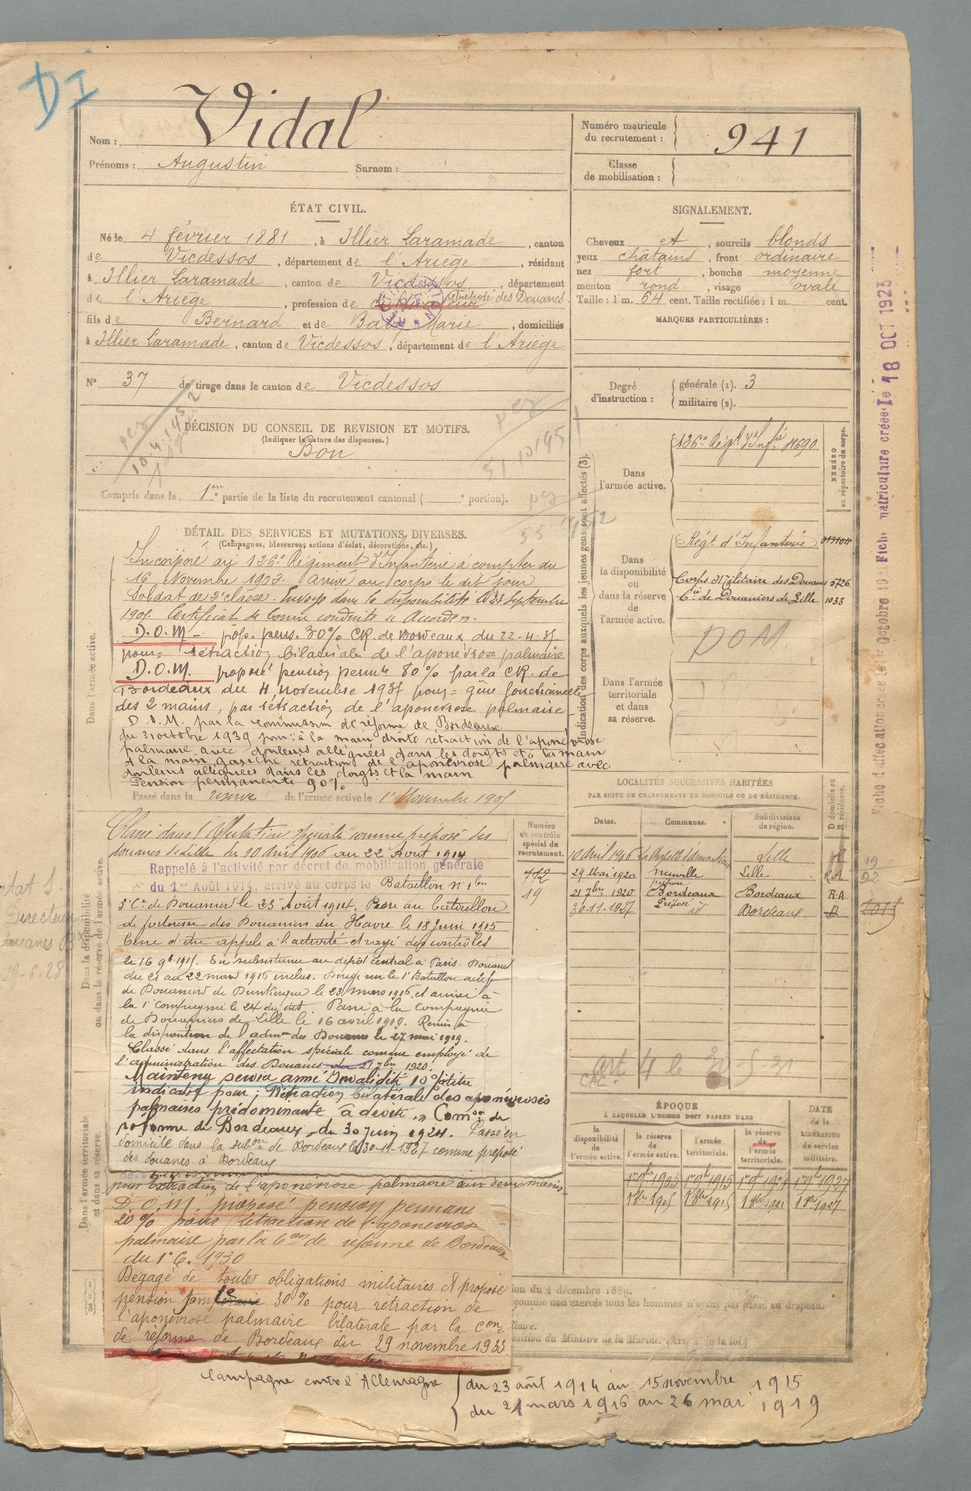 DI
Nom : Vidal
Prénoms : Augustin Surnom :
Numéro matricule du recrutement : 941
Classe de mobilisation :
ÉTAT CIVIL.
Né le 4 février 1881, à Illier Laramade, canton
de Vicdessos, département de l'Ariège, résidant
à Illier Laramade, canton de Vicdessos, département
de l'Ariège, profession de préposé des Douanes
fils de Bernard et de Marie, domiciliés
à Illier Laramade, canton de Vicdessos, département de l'Ariège
N° 37 de tirage dans le canton de Vicdessos
SIGNALEMENT.
Cheveux et, sourcils blonds
yeux châtains, front ordinaire
nez fort, bouche moyenne
menton rond, visage ovale
Taille : 1 m. 64 cent. Taille rectifiée : 1 m. cent.
MARQUES PARTICULIÈRES :
Degré d'instruction : générale (1). 3
militaire (2).
DÉCISION DU CONSEIL DE REVISION ET MOTIFS.
(Indiquer la nature des dispenses.)
Bon
Compris dans la 1re partie de la liste du recrutement cantonal ( portion).
DÉTAIL DES SERVICES ET MUTATIONS DIVERSES.
(Campagnes, blessures, actions d'éclat, décorations, etc.)
Incorporé au 126e Régiment d'Infanterie à compter du
16 Novembre 1902. Arrivé au corps le dit jour
Soldat de 2e classe. Envoyé dans la disponibilité le 23 Septembre
Certificat de bonne conduite accordé.
D.O.M. prop. pens. 30% CR. de Bordeaux du 22-4-
pour rétraction bilatérale de l'aponévrose palmaire
D.O.M. proposé pension permte 80% par la CR. de
Bordeaux du 4 novembre 1937 pour gêne fonctionnelle
des 2 mains, par rétraction de l'aponévrose palmaire
D.O.M. par la commission de réforme de Bordeaux
du 3 octobre 1939 pour : à la main droite rétraction de l'aponévrose
palmaire avec douleurs alléguées dans les doigts et la main
à la main gauche rétraction de l'aponévrose palmaire avec
douleurs alléguées dans les doigts et la main
Pension permanente 90%
Passé dans la réserve de l'armée active le 1er Novembre 1905
Classé dans l'affectation spéciale comme préposé des
douanes à Lille du 10 Avril 1906 au 22 Août 1914
Rappelé à l'activité par décret de mobilisation générale
du 1er Août 1914, arrivé au corps le Bataillon n° 1
3e Cie de Douaniers le 23 Août 1914. Passé au bataillon
de forteresse des Douaniers du Havre le 18 Juin 1915
Cesse d'être appelé à l'activité et rayé des contrôles
le 16 9bre 1915. En subsistance au dépôt central à Paris. Douanes
du 21 au 22 mars 1916 inclus. Dirigé sur le 1er Bataillon actif
de Douaniers de Dunkerque le 23 mars 1916, et arrivé à
la 1e compagnie le 24 du dit. Passé à la Compagnie
de Douaniers de Lille le 16 avril 1919. Remis à
la disposition de l'adm. des Douanes le 27 mai 1919.
Classé dans l'affectation spéciale comme employé de
l'administration des Douanes du 21 7bre 1920.
Maintenu service armé Invalidité 10%
indicatif pour ; Rétraction bilatérale des aponévroses
palmaires prédominante à droite. Comon de
réforme de Bordeaux du 30 juin 1924. Passé en
domicile dans la subon de Bordeaux le 30-11-1927 comme préposé
des douanes à Bordeaux
pour rétraction de l'aponévrose palmaire aux deux mains.
D.O.M. proposé pension permane
20% pour rétraction de l'aponévrose
palmaire par la Con de réforme de Bordeaux
du 1er 6. 1930
Dégagé de toutes obligations militaires & proposé
pension 30% pour rétraction de
l'aponévrose palmaire bilatérale par la con
de réforme de Bordeaux du 29 novembre 1933
Campagne contre l'Allemagne
du 23 août 1914 au 15 novembre 1915
du 21 mars 1916 au 26 mai 1919
Indication des corps auxquels les jeunes gens sont affectés (3).
NUMÉRO au répertoire du corps.
Dans l'armée active.
126e Régt d'Infie 4690
Dans la disponibilité ou dans la réserve de l'armée active.
Régt d'Infanterie
Corps Militaire des Douanes 5726
Cie de Douaniers de Lille 1033
DOM
Dans l'armée territoriale et dans sa réserve.
LOCALITÉS SUCCESSIVES HABITÉES
PAR SUITE DE CHANGEMENTS DE DOMICILE OU DE RÉSIDENCE.
Dates. Communes. Subdivisions de région. D domicile ou R résidence.
10 Avril 1906 Lille
29 Mai 1920 Neuville Lille. R.A
21 7bre 1920 Bordeaux Bordeaux R.A
30-11-1927 Préposé id Bordeaux D
Numéro au contrôle spécial du recrutement.
19
art 4
CAC.
ÉPOQUE
À LAQUELLE L'HOMME DOIT PASSER DANS
la disponibilité de l'armée active. la réserve de l'armée active. l'armée territoriale. la réserve de l'armée territoriale.
DATE de la LIBÉRATION du service militaire.
Dans l'armée active.
Dans la disponibilité ou dans la réserve de l'armée active.
Dans l'armée territoriale et dans sa réserve.
18 OCT 1923